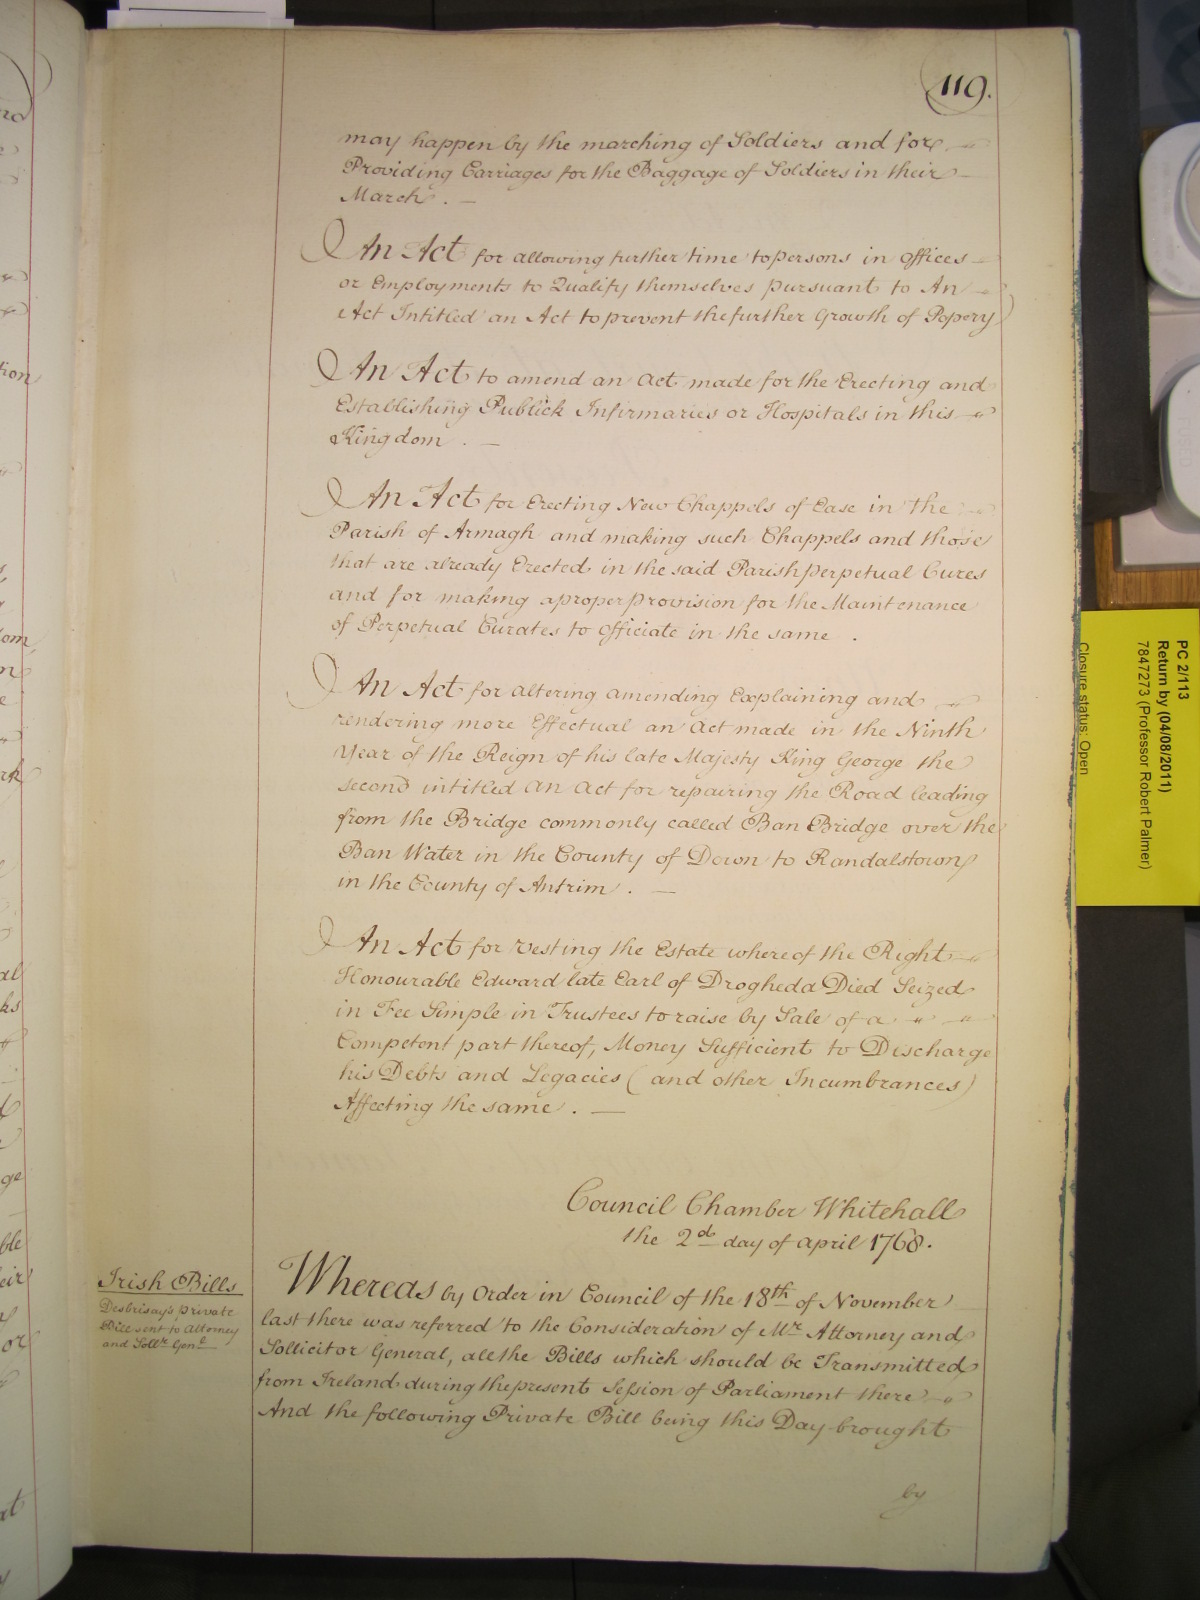 119.
may happen by the marching of Soldiers and for
Providing Carriages for the Baggage of Soldiers in their
March . —
An Act for allowing further time to persons in offices
or Employments to Qualify themselves pursuant to An
Act Intitled an Act to prevent the further Growth of Popery
An Act to amend an Act made for the Erecting and
Establishing Publick Infirmaries or Hospitals in this
Kingdom . —
An Act for Erecting New Chappels of Ease in the
Parish of Armagh and making such Chappels and those
that are already Erected in the said Parish perpetual Cures
and for making a proper provision for the Maintenance
of Perpetual Curates to officiate in the same .
An Act for altering amending Explaining and
rendering more Effectual an Act made in the Ninth
Year of the Reign of his late Majesty King George the
second intitled An Act for repairing the Road leading
from the Bridge commonly called Ban Bridge over the
Ban Water in the County of Down to Randalstown
in the County of Antrim . —
An Act for vesting the Estate whereof the Right
Honourable Edward late Earl of Drogheda Died Seized
in Fee Simple in Trustees to raise by Sale of a
Competent part thereof, Money Sufficient to Discharge
his Debts and Legacies (and other Incumbrances)
Affecting the same . —
Council Chamber Whitehall
the 2d day of April 1768.
Irish Bills
Desbrisay's private
Bill sent to Attorney
and Sollr Genl
Whereas by Order in Council of the 18th of November
last there was referred to the Consideration of Mr Attorney and
Sollicitor General, all the Bills which should be Transmitted
from Ireland during the present Session of Parliament there
And the following Private Bill being this Day brought
by
PC 2/113
Return by (04/08/2011)
7847273 (Professor Robert Palmer)
Closure status: Open